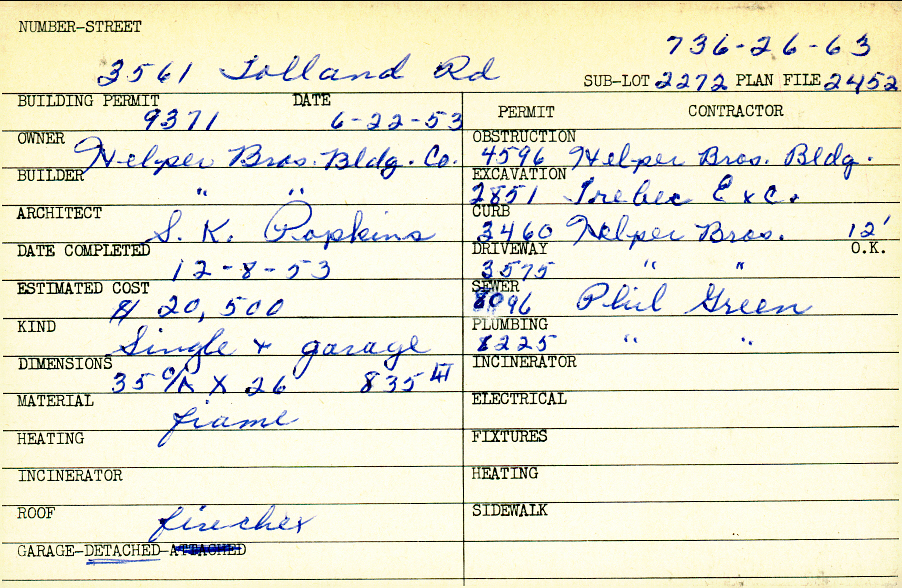 NUMBER-STREET
736-26-63
3561 Tolland Rd
SUB-LOT 2272 PLAN FILE 2452
BUILDING PERMIT DATE
9371 6-22-53
OWNER Helper Bros. Bldg. Co.
BUILDER " "
ARCHITECT S. K. Popkins
DATE COMPLETED 12-8-53
ESTIMATED COST $ 20,500
KIND Single + garage
DIMENSIONS 35 O/A X 26 835
MATERIAL frame
HEATING
INCINERATOR
ROOF firechex
GARAGE-DETACHED-ATTACHED
PERMIT CONTRACTOR
OBSTRUCTION
4596 Helper Bros. Bldg.
EXCAVATION
2851 Trebec Exc.
CURB
3460 Helper Bros. 12'
DRIVEWAY O.K.
3575 " "
SEWER
8096 Phil Green
PLUMBING
8225 " "
INCINERATOR
ELECTRICAL
FIXTURES
HEATING
SIDEWALK